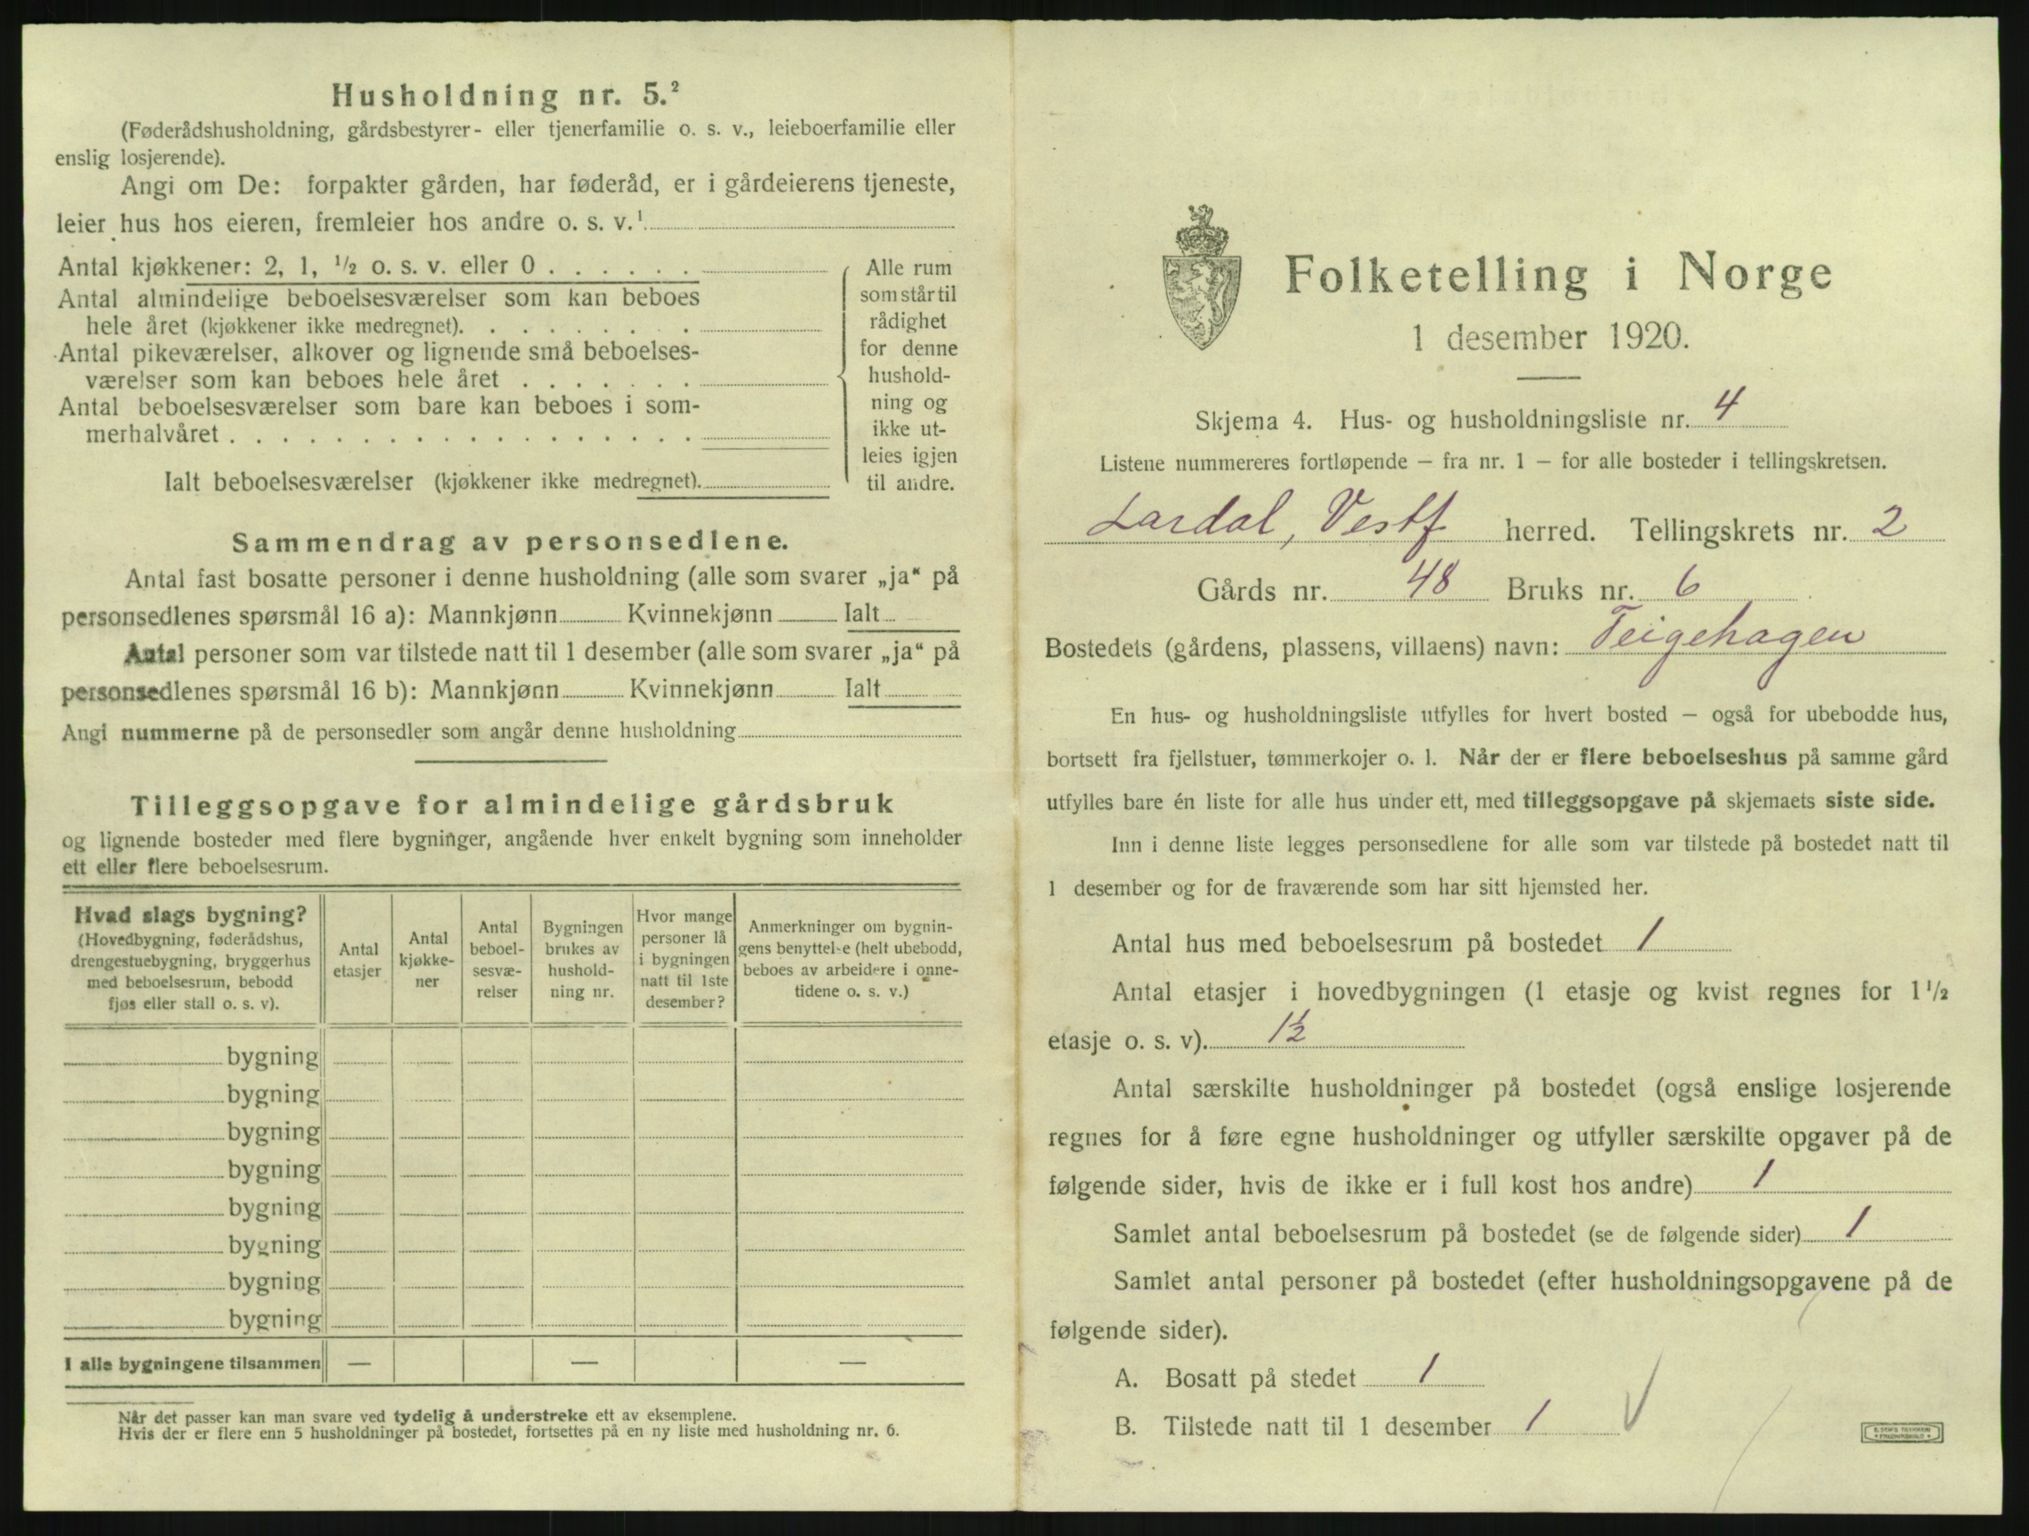 Husholdning nr. 5.²
(Føderådshusholdning, gårdsbestyrer- eller tjenerfamilie o. s. v., leieboerfamilie eller
enslig losjerende).
Angi om De: forpakter gården, har føderåd, er i gårdeierens tjeneste,
leier hus hos eieren, fremleier hos andre o. s. v.¹
Antal kjøkkener: 2, 1, ½ o. s. v. eller 0 . . . . . .
Antal almindelige beboelsesværelser som kan beboes
hele året (kjøkkener ikke medregnet). . . . . . . . .
Antal pikeværelser, alkover og lignende små beboelses-
værelser som kan beboes hele året . . . . . . .
Antal beboelsesværelser som bare kan beboes i som-
merhalvåret . . . . . . . . . . . . . . . . . .
Ialt beboelsesværelser (kjøkkener ikke medregnet).
Alle rum
som står til
rådighet
for denne
hushold-
ning og
ikke ut-
leies igjen
til andre.
Sammendrag av personsedlene.
Antal fast bosatte personer i denne husholdning (alle som svarer „ja“ på
personsedlenes spørsmål 16 a): Mannkjønn Kvinnekjønn Ialt
Antal personer som var tilstede natt til 1 desember (alle som svarer „ja“ på
personsedlenes spørsmål 16 b): Mannkjønn Kvinnekjønn Ialt
Angi nummerne på de personsedler som angår denne husholdning
Tilleggsopgave for almindelige gårdsbruk
og lignende bosteder med flere bygninger, angående hver enkelt bygning som inneholder
ett eller flere beboelsesrum.
Hvad slags bygning?
(Hovedbygning, føderådshus,
drengestuebygning, bryggerhus
med beboelsesrum, bebodd
fjøs eller stall o. s. v).
Antal
etasjer
Antal
kjøkke-
ner
Antal
beboel-
sesvæ-
relser
Bygningen
brukes av
hushold-
ning nr.
Hvor mange
personer lå
i bygningen
natt til 1ste
desember?
Anmerkninger om bygnin-
gens benyttelse (helt ubebodd,
beboes av arbeidere i onne-
tidene o. s. v.)
bygning
bygning
bygning
bygning
bygning
bygning
bygning
bygning
I alle bygningene tilsammen — — —
Når det passer kan man svare ved tydelig å understreke ett av eksemplene.
Hvis der er flere enn 5 husholdninger på bostedet, fortsettes på en ny liste med husholdning nr. 6.
Folketelling i Norge
1 desember 1920.
Skjema 4. Hus- og husholdningsliste nr. 4
Listene nummereres fortløpende — fra nr. 1 — for alle bosteder i tellingskretsen.
Lardal, Vestf herred. Tellingskrets nr. 2
Gårds nr. 48 Bruks nr. 6
Bostedets (gårdens, plassens, villaens) navn: Teigehagen
En hus- og husholdningsliste utfylles for hvert bosted — også for ubebodde hus,
bortsett fra fjellstuer, tømmerkojer o. l. Når der er flere beboelseshus på samme gård
utfylles bare én liste for alle hus under ett, med tilleggsopgave på skjemaets siste side.
Inn i denne liste legges personsedlene for alle som var tilstede på bostedet natt til
1 desember og for de fraværende som har sitt hjemsted her.
Antal hus med beboelsesrum på bostedet 1
Antal etasjer i hovedbygningen (1 etasje og kvist regnes for 1½
etasje o. s. v). 1½
Antal særskilte husholdninger på bostedet (også enslige losjerende
regnes for å føre egne husholdninger og utfyller særskilte opgaver på de
følgende sider, hvis de ikke er i full kost hos andre) 1
Samlet antal beboelsesrum på bostedet (se de følgende sider) 1
Samlet antal personer på bostedet (efter husholdningsopgavene på de
følgende sider).
A. Bosatt på stedet 1
B. Tilstede natt til 1 desember 1